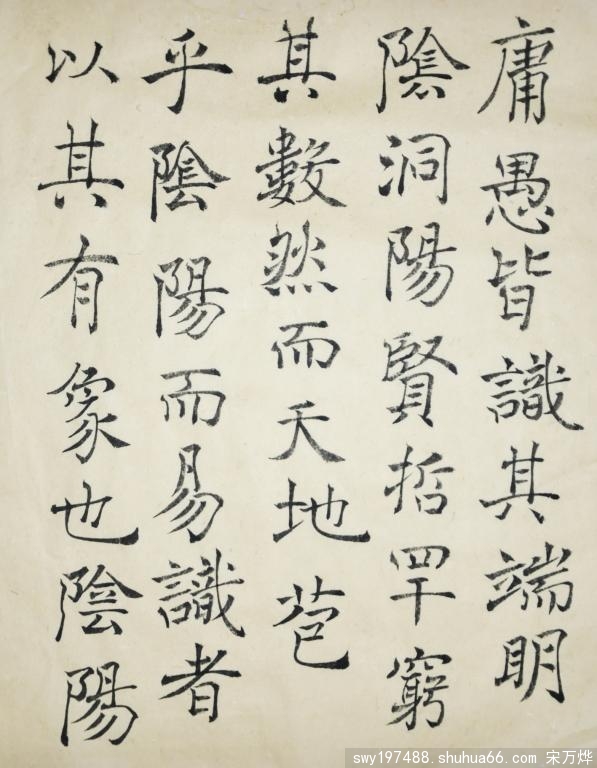 庸愚皆識其端明
陰洞陽賢哲罕窮
其數然而天地苞
乎陰陽而易識者
以其有象也陰陽
swy197488.shuhua66.com 宋万烨